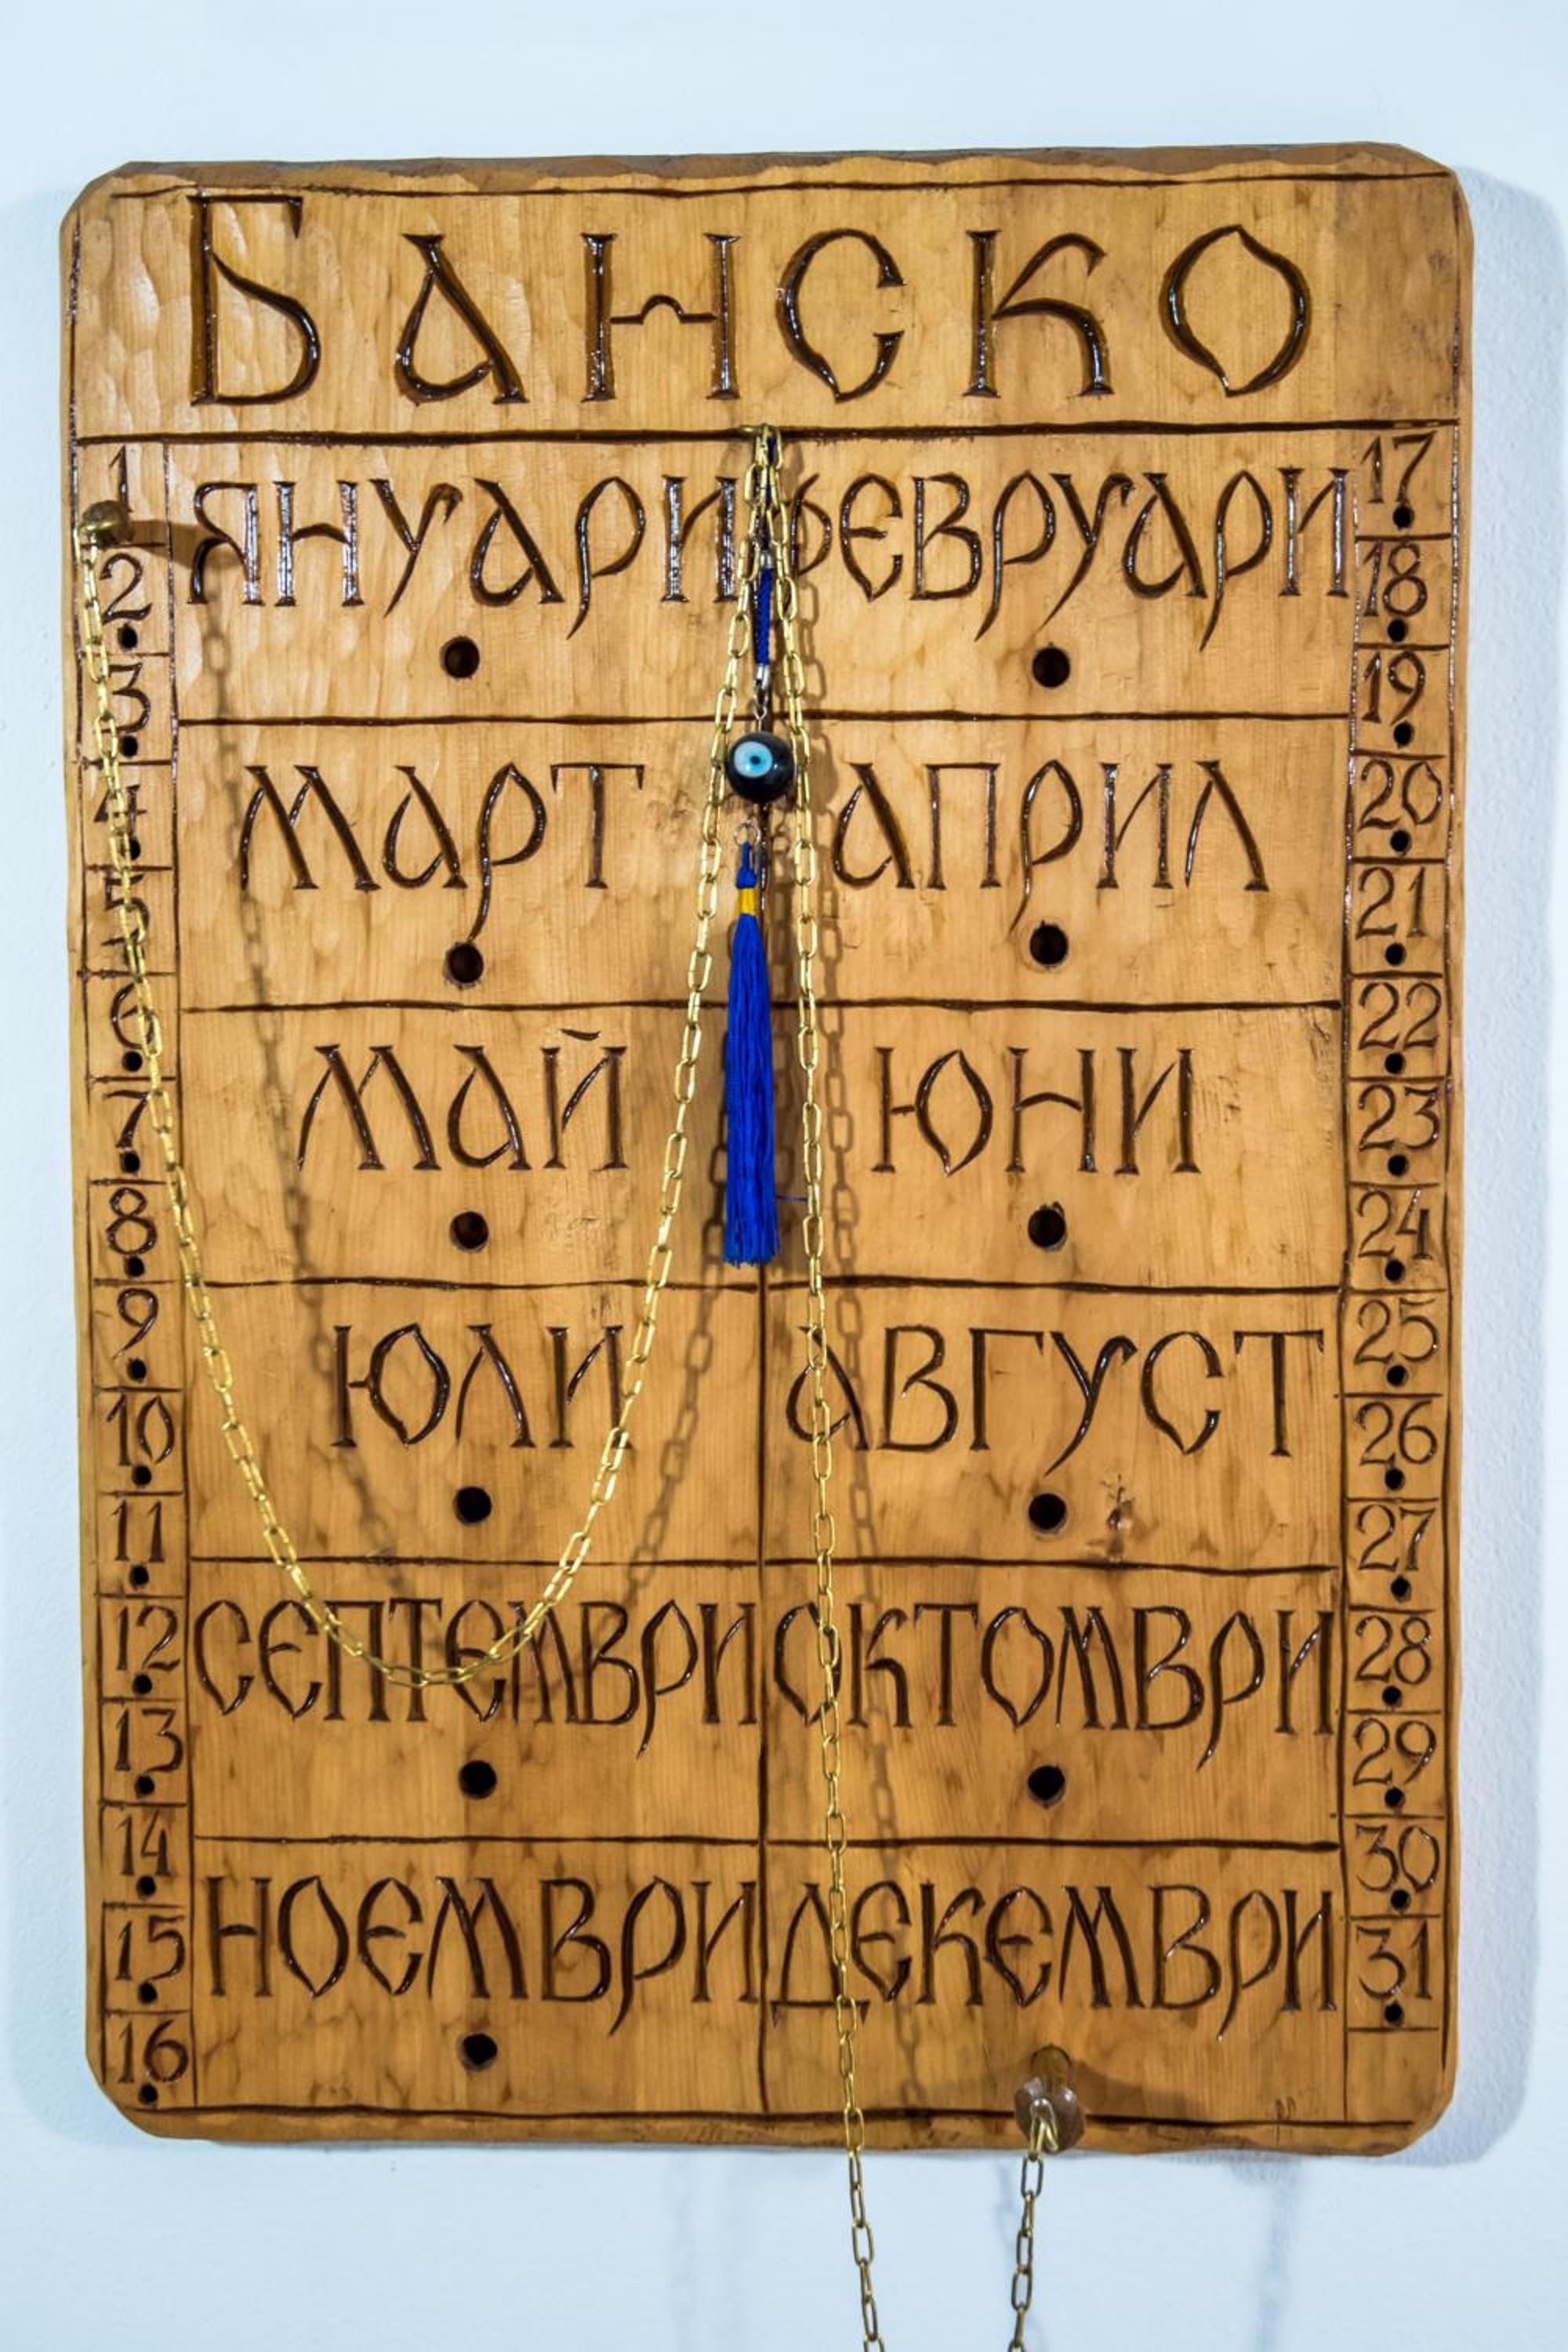 БАНСКО
1 ЯНУАРИ ФЕВРУАРИ 17
2 18
3 19
4 МАРТ АПРИЛ 20
5 21
6 22
7 МАЙ ЮНИ 23
8 24
9 ЮЛИ АВГУСТ 25
10 26
11 27
12 СЕПТЕМВРИ ОКТОМВРИ 28
13 29
14 30
15 НОЕМВРИ ДЕКЕМВРИ 31
16